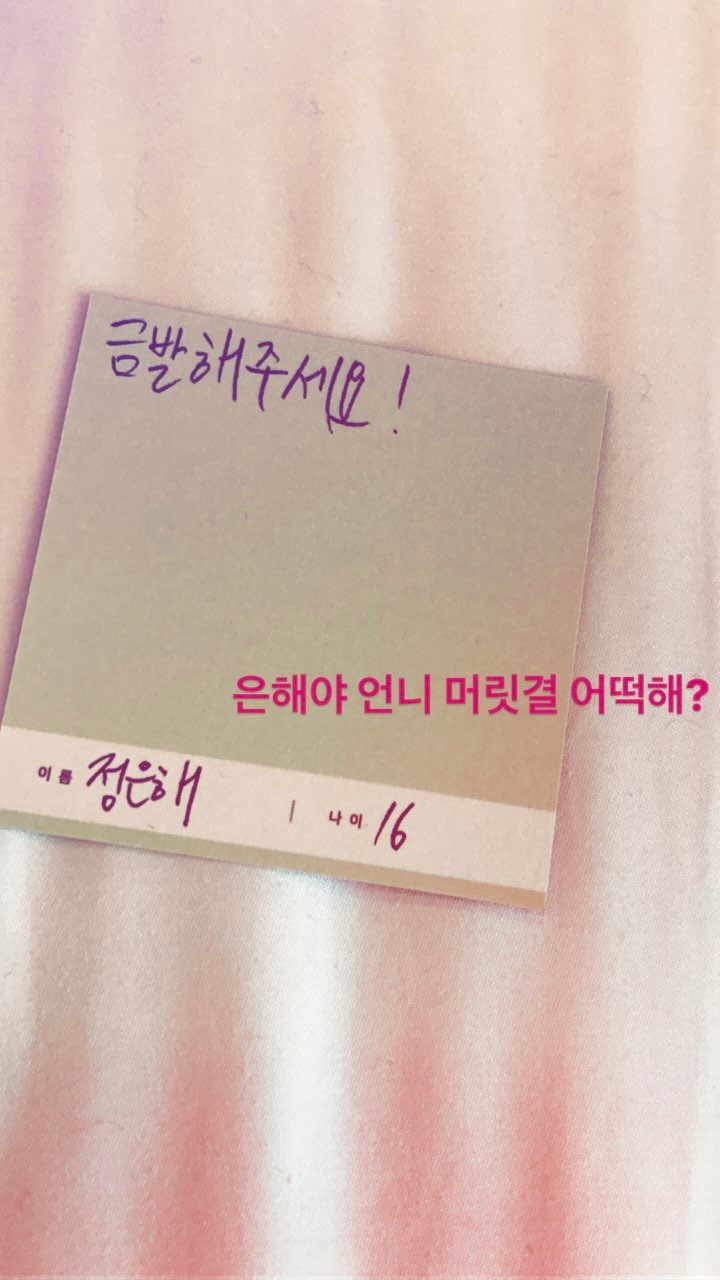 금발해주세요!
은해야 언니 머릿결 어떡해?
이름 정은해 | 나이 16